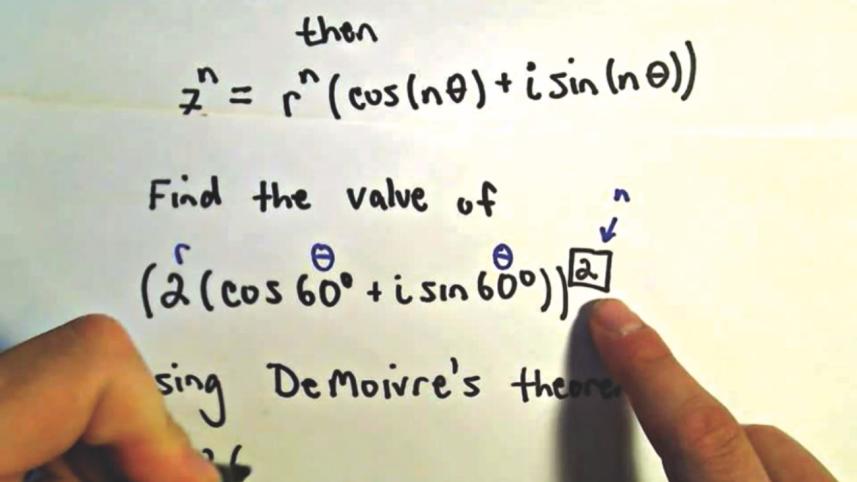 then
zⁿ = rⁿ(cos(nθ) + i sin(nθ))
Find the value of
n
r θ θ
(2(cos 60° + i sin 60°))²
sing DeMoivre's theore